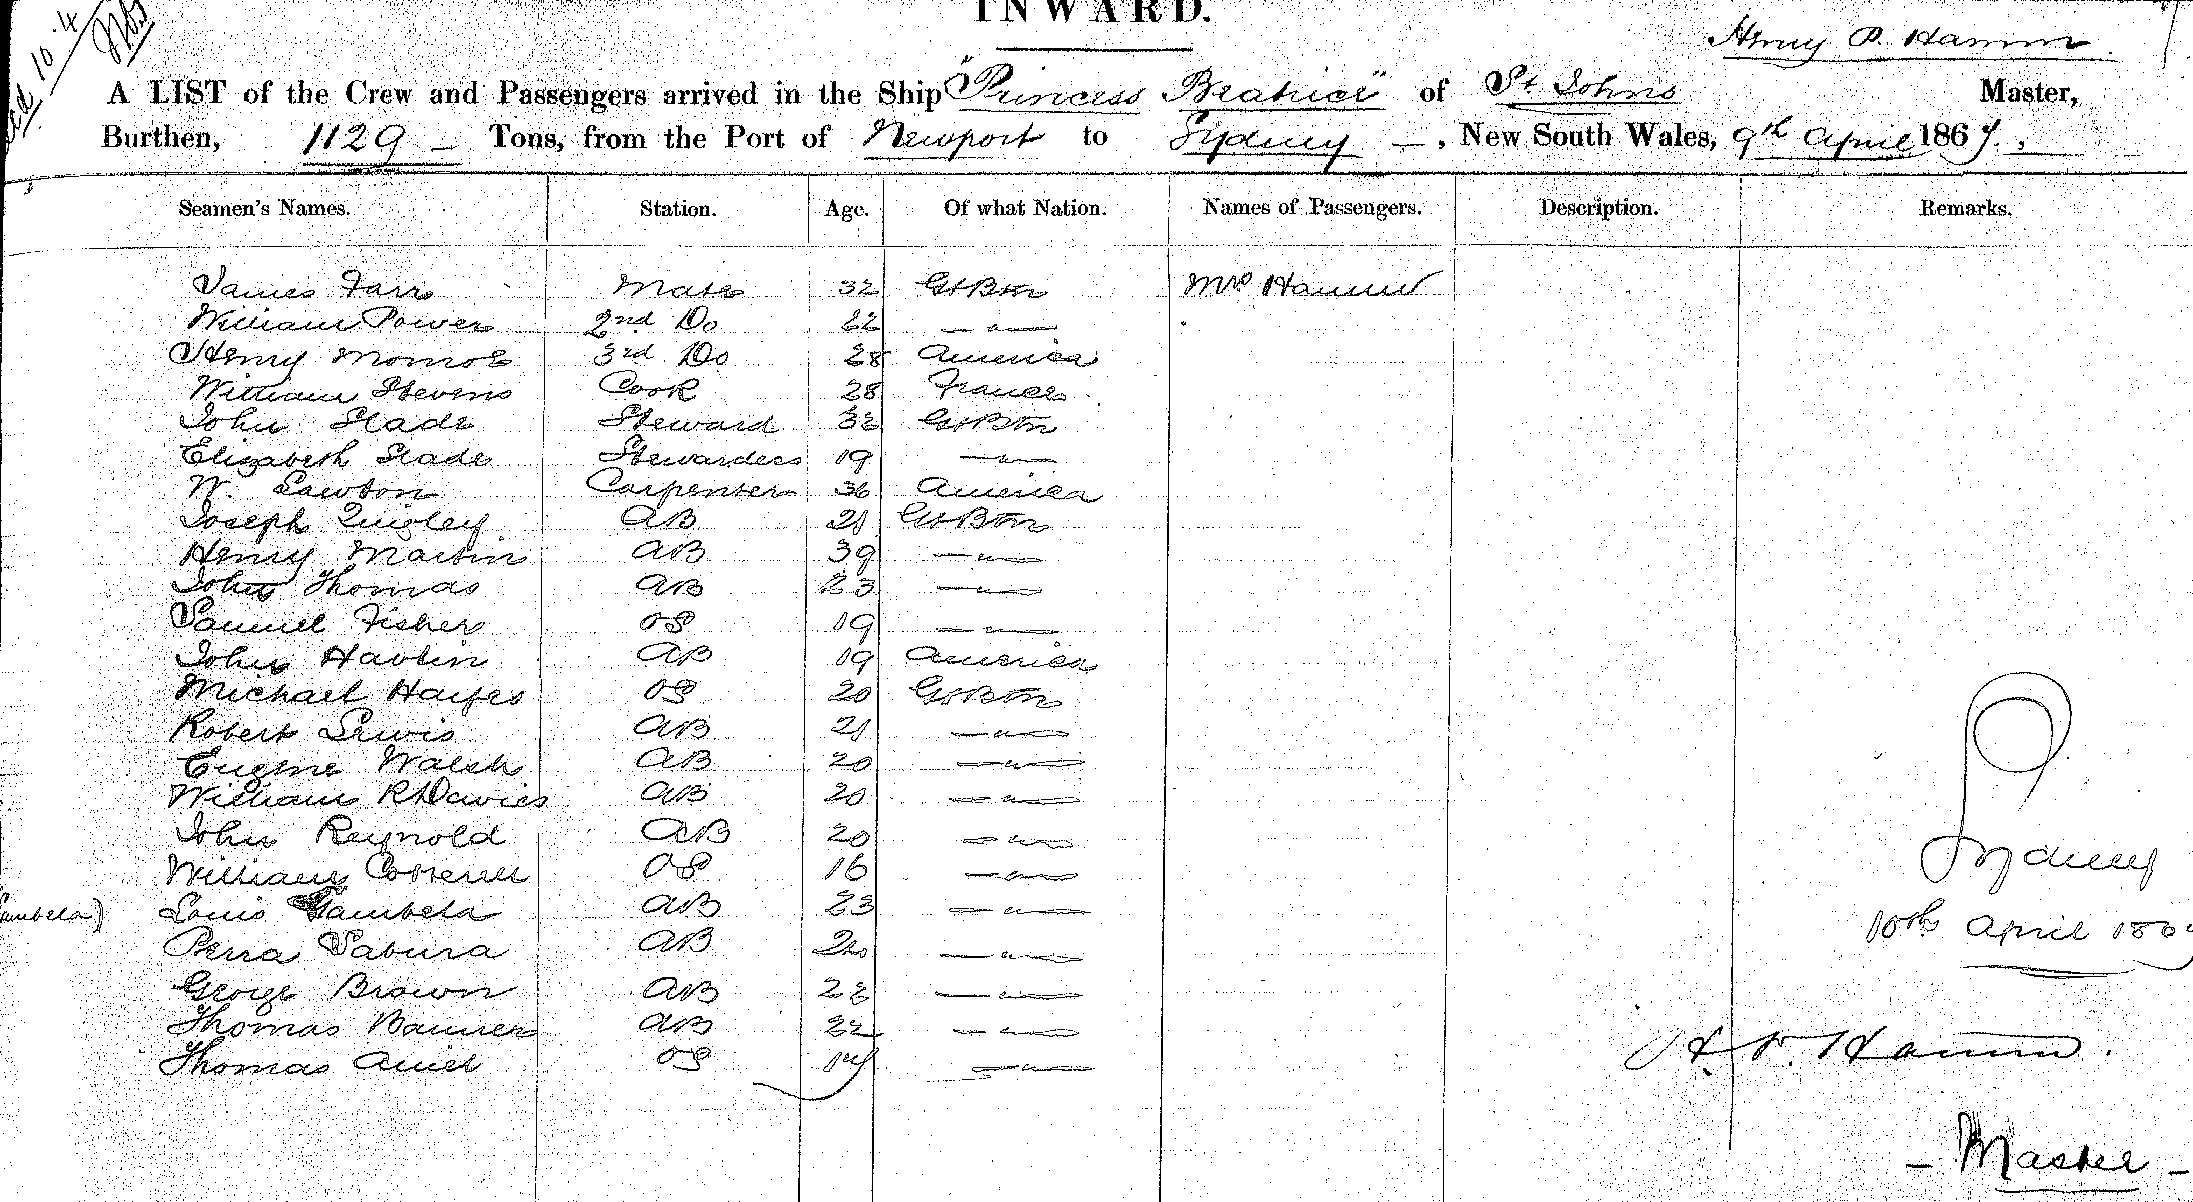 INWARD.
Henry P. Hamm
A LIST of the Crew and Passengers arrived in the Ship "Princess Beatrice" of St Johns Master,
Burthen, 1129 Tons, from the Port of Newport to Sydney, New South Wales, 9th April 1867.
Seamen's Names. Station. Age. Of what Nation. Names of Passengers. Description. Remarks.
James Farr Mate 32 Gt Btn Mrs Hamm
William Power 2nd Do 22 — " —
Henry Monroe 3rd Do 28 America
William Stevens Cook 28 France
John Slade Steward 32 Gt Btn
Elizabeth Slade Stewardess 19 — " —
W. Lawton Carpenter 36 America
Joseph Quigley AB 21 Gt Btn
Henry Martin AB 39 — " —
John Thomas AB 23 — " —
Samuel Fisher OS 19 — " —
John Havlin AB 19 America
Michael Hayes OS 20 Gt Btn
Robert Lewis AB 21 — " —
Eugene Walsh AB 20 — " —
William R Davies AB 20 — " —
John Reynold AB 20 — " —
William OS 16 — " —
Louis Gambela AB 23 — " —
Perra Sabura AB — " —
George Brown AB 28 — " —
Thomas Banner AB 22 — " —
Thomas OS — " —
Sydney
10th April 186
H. P. Hamm.
— Master —